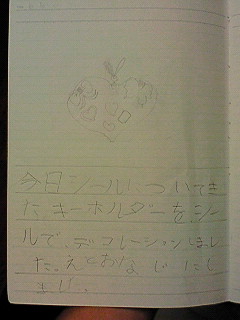 今日シールについてき
た、キーホルダーを、シー
ルで、デコレーションしまし
た。えとおなじにしも
ました。